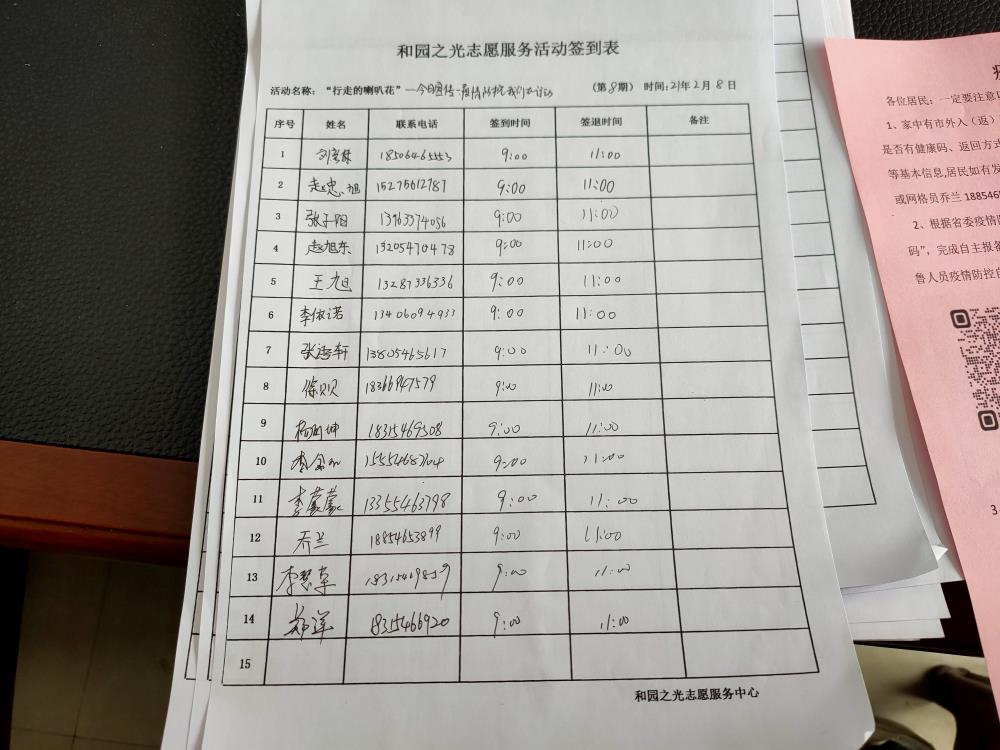 和园之光志愿服务活动签到表
活动名称：“行走的喇叭花” （第8期） 时间：21年2月8日
序号 姓名 联系电话 签到时间 签退时间 备注
1 18506465553 9:00 11:00
2 赵忠旭 15275612787 9:00 11:00
3 张子阳 13963374056 9:00 11:00
4 赵旭东 13205470478 9:00 11:00
5 王旭 13287336336 9:00 11:00
6 李依诺 13406094933 9:00 11:00
7 13805465617 9:00 11:00
8 18366947579 9:00 11:00
9 18315469508 9:00 11:00
10 9:00 11:00
11 李蒙蒙 13355463798 9:00 11:00
12 乔兰 18854653899 9:00 11:00
13 9:00 11:00
14 郑洋 18315466920 9:00 11:00
15
和园之光志愿服务中心
各位居民：一定要注意
1、家中有市外人（返）
是否有健康码、返回方式
等基本信息,居民如有发
或网格员乔兰 188546
2、根据省委疫情防
码”，完成自主报备
鲁人员疫情防控自
3